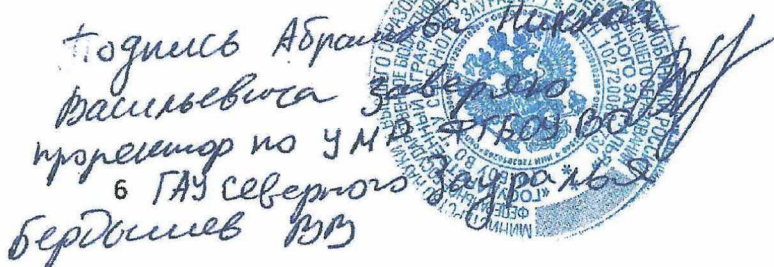 Подпись Абрамова Николая
Васильевича заверяю
проректор по УМР ФГБОУ ВО
6 ГАУ Северного Зауралья
Бердышев ВВ